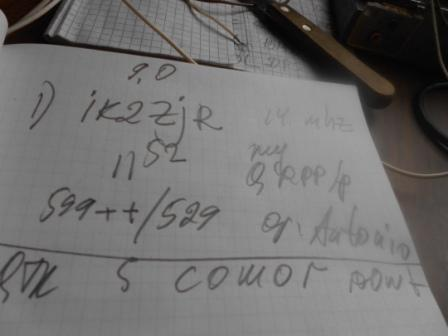 9,0
1) ik2ZjR 14 mhz
1152 my
QRPP/p
599++/529 op. Antonio
QTH 5 comor